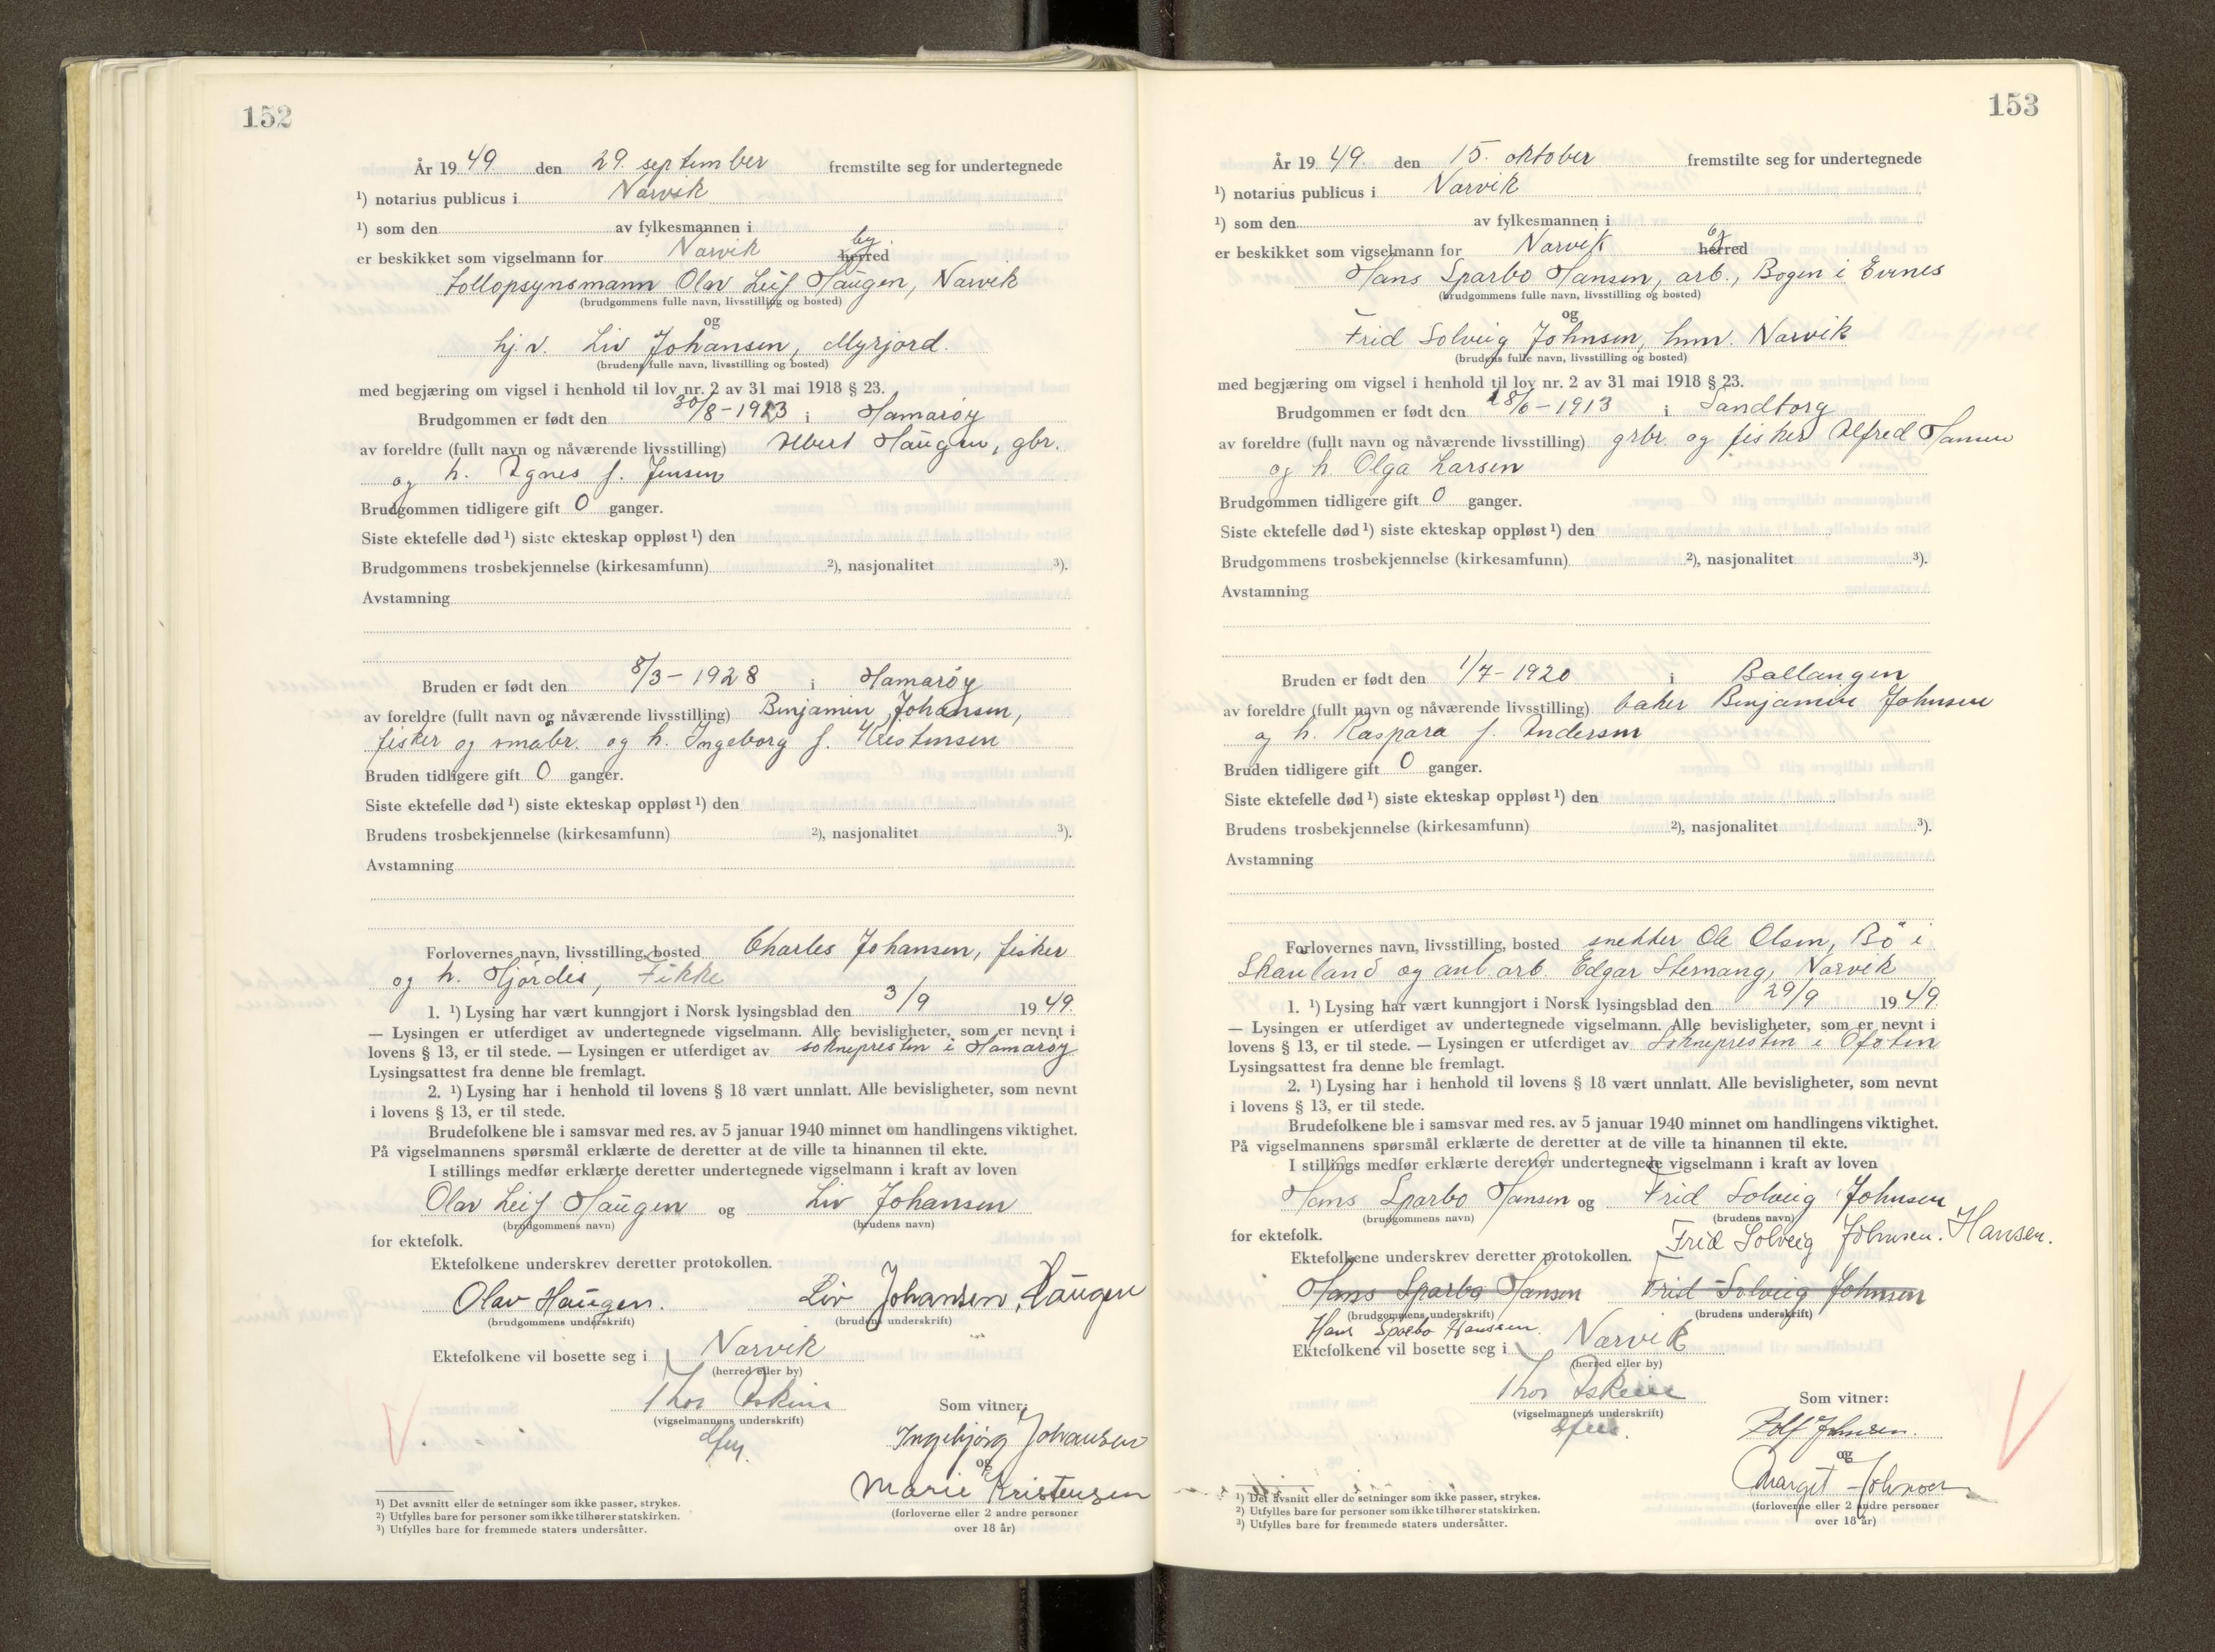 152
År 1949 den 29. september fremstilte seg for undertegnede
¹) notarius publicus i Narvik
¹) som den av fylkesmannen i
by
er beskikket som vigselmann for Narvik herred
tollopsynsmann Olav Leif Haugen, Narvik
(brudgommens fulle navn, livsstilling og bosted)
og
hj.v. Liv Johansen, Myrjord.
(brudens fulle navn, livsstilling og bosted)
med begjæring om vigsel i henhold til lov nr. 2 av 31 mai 1918 § 23.
Brudgommen er født den 30/8-1923 i Hamarøy
av foreldre (fullt navn og nåværende livsstilling) Albert Haugen, gbr.
og h. Agnes f. Jensen
Brudgommen tidligere gift 0 ganger.
Siste ektefelle død ¹) siste ekteskap oppløst ¹) den
Brudgommens trosbekjennelse (kirkesamfunn) ²), nasjonalitet ³).
Avstamning
Bruden er født den 8/3-1928 i Hamarøy
av foreldre (fullt navn og nåværende livsstilling) Benjamin Johansen,
fisker og småbr. og h. Ingeborg f. Kristensen
Bruden tidligere gift 0 ganger.
Siste ektefelle død ¹) siste ekteskap oppløst ¹) den
Brudens trosbekjennelse (kirkesamfunn) ²), nasjonalitet ³).
Avstamning
Forlovernes navn, livsstilling, bosted Charles Johansen, fisker
og h. Hjørdis, Fikke
1. ¹) Lysing har vært kunngjort i Norsk lysingsblad den 3/9 1949.
— Lysingen er utferdiget av undertegnede vigselmann. Alle bevisligheter, som er nevnt i
lovens § 13, er til stede. — Lysingen er utferdiget av soknepresten i Hamarøy
Lysingsattest fra denne ble fremlagt.
2. ¹) Lysing har i henhold til lovens § 18 vært unnlatt. Alle bevisligheter, som nevnt
i lovens § 13, er til stede.
Brudefolkene ble i samsvar med res. av 5 januar 1940 minnet om handlingens viktighet.
På vigselmannens spørsmål erklærte de deretter at de ville ta hinannen til ekte.
I stillings medfør erklærte deretter undertegnede vigselmann i kraft av loven
Olav Leif Haugen og Liv Johansen
(brudgommens navn) (brudens navn)
for ektefolk.
Ektefolkene underskrev deretter protokollen.
Olav Haugen. Liv Johansen, Haugen
(brudgommens underskrift) (brudens underskrift)
Ektefolkene vil bosette seg i Narvik
(herred eller by)
Thor
(vigselmannens underskrift) Som vitner:
Ingebjørg Johansen
og
Marie Kristensen
(forloverne eller 2 andre personer
over 18 år)
¹) Det avsnitt eller de setninger som ikke passer, strykes.
²) Utfylles bare for personer som ikke tilhører statskirken.
³) Utfylles bare for fremmede staters undersåtter.
153
År 1949. den 15. oktober fremstilte seg for undertegnede
¹) notarius publicus i Narvik
¹) som den av fylkesmannen i
by
er beskikket som vigselmann for Narvik herred
Hans Sparbo Hansen, arb., Bogen i Evenes
(brudgommens fulle navn, livsstilling og bosted)
og
Frid Solveig Johnsen, hmv. Narvik
(brudens fulle navn, livsstilling og bosted)
med begjæring om vigsel i henhold til lov nr. 2 av 31 mai 1918 § 23.
Brudgommen er født den 18/6-1913 i Sandtorg
av foreldre (fullt navn og nåværende livsstilling) grbr. og fisker Alfred Hansen
og h. Olga Larsen
Brudgommen tidligere gift 0 ganger.
Siste ektefelle død ¹) siste ekteskap oppløst ¹) den
Brudgommens trosbekjennelse (kirkesamfunn) ²), nasjonalitet ³).
Avstamning
Bruden er født den 1/7-1920 i Ballangen
av foreldre (fullt navn og nåværende livsstilling) baker Benjamin Johnsen
og h. Kaspara f. Andersen
Bruden tidligere gift 0 ganger.
Siste ektefelle død ¹) siste ekteskap oppløst ¹) den
Brudens trosbekjennelse (kirkesamfunn) ²), nasjonalitet ³).
Avstamning
Forlovernes navn, livsstilling, bosted snekker Ole Olsen, Bö i
Skånland og anl.arb. Edgar Sternang, Narvik
1. ¹) Lysing har vært kunngjort i Norsk lysingsblad den 29/9 1949.
— Lysingen er utferdiget av undertegnede vigselmann. Alle bevisligheter, som er nevnt i
lovens § 13, er til stede. — Lysingen er utferdiget av Soknepresten i Ofoten
Lysingsattest fra denne ble fremlagt.
2. ¹) Lysing har i henhold til lovens § 18 vært unnlatt. Alle bevisligheter, som nevnt
i lovens § 13, er til stede.
Brudefolkene ble i samsvar med res. av 5 januar 1940 minnet om handlingens viktighet.
På vigselmannens spørsmål erklærte de deretter at de ville ta hinannen til ekte.
I stillings medfør erklærte deretter undertegnede vigselmann i kraft av loven
Hans Sparbo Hansen og Frid Solveig Johnsen
(brudgommens navn) (brudens navn)
for ektefolk. Frid Solveig Johnsen. Hansen.
Ektefolkene underskrev deretter protokollen.
Hans Sparbo Hansen Frid Solveig Johnsen
(brudgommens underskrift) (brudens underskrift)
Hans Sparbo Hanssen.
Ektefolkene vil bosette seg i Narvik
(herred eller by)
Thor
(vigselmannens underskrift) Som vitner:
Rolf Johnsen.
og
Margit Johnsen
(forloverne eller 2 andre personer
over 18 år)
¹) Det avsnitt eller de setninger som ikke passer, strykes.
²) Utfylles bare for personer som ikke tilhører statskirken.
³) Utfylles bare for fremmede staters undersåtter.